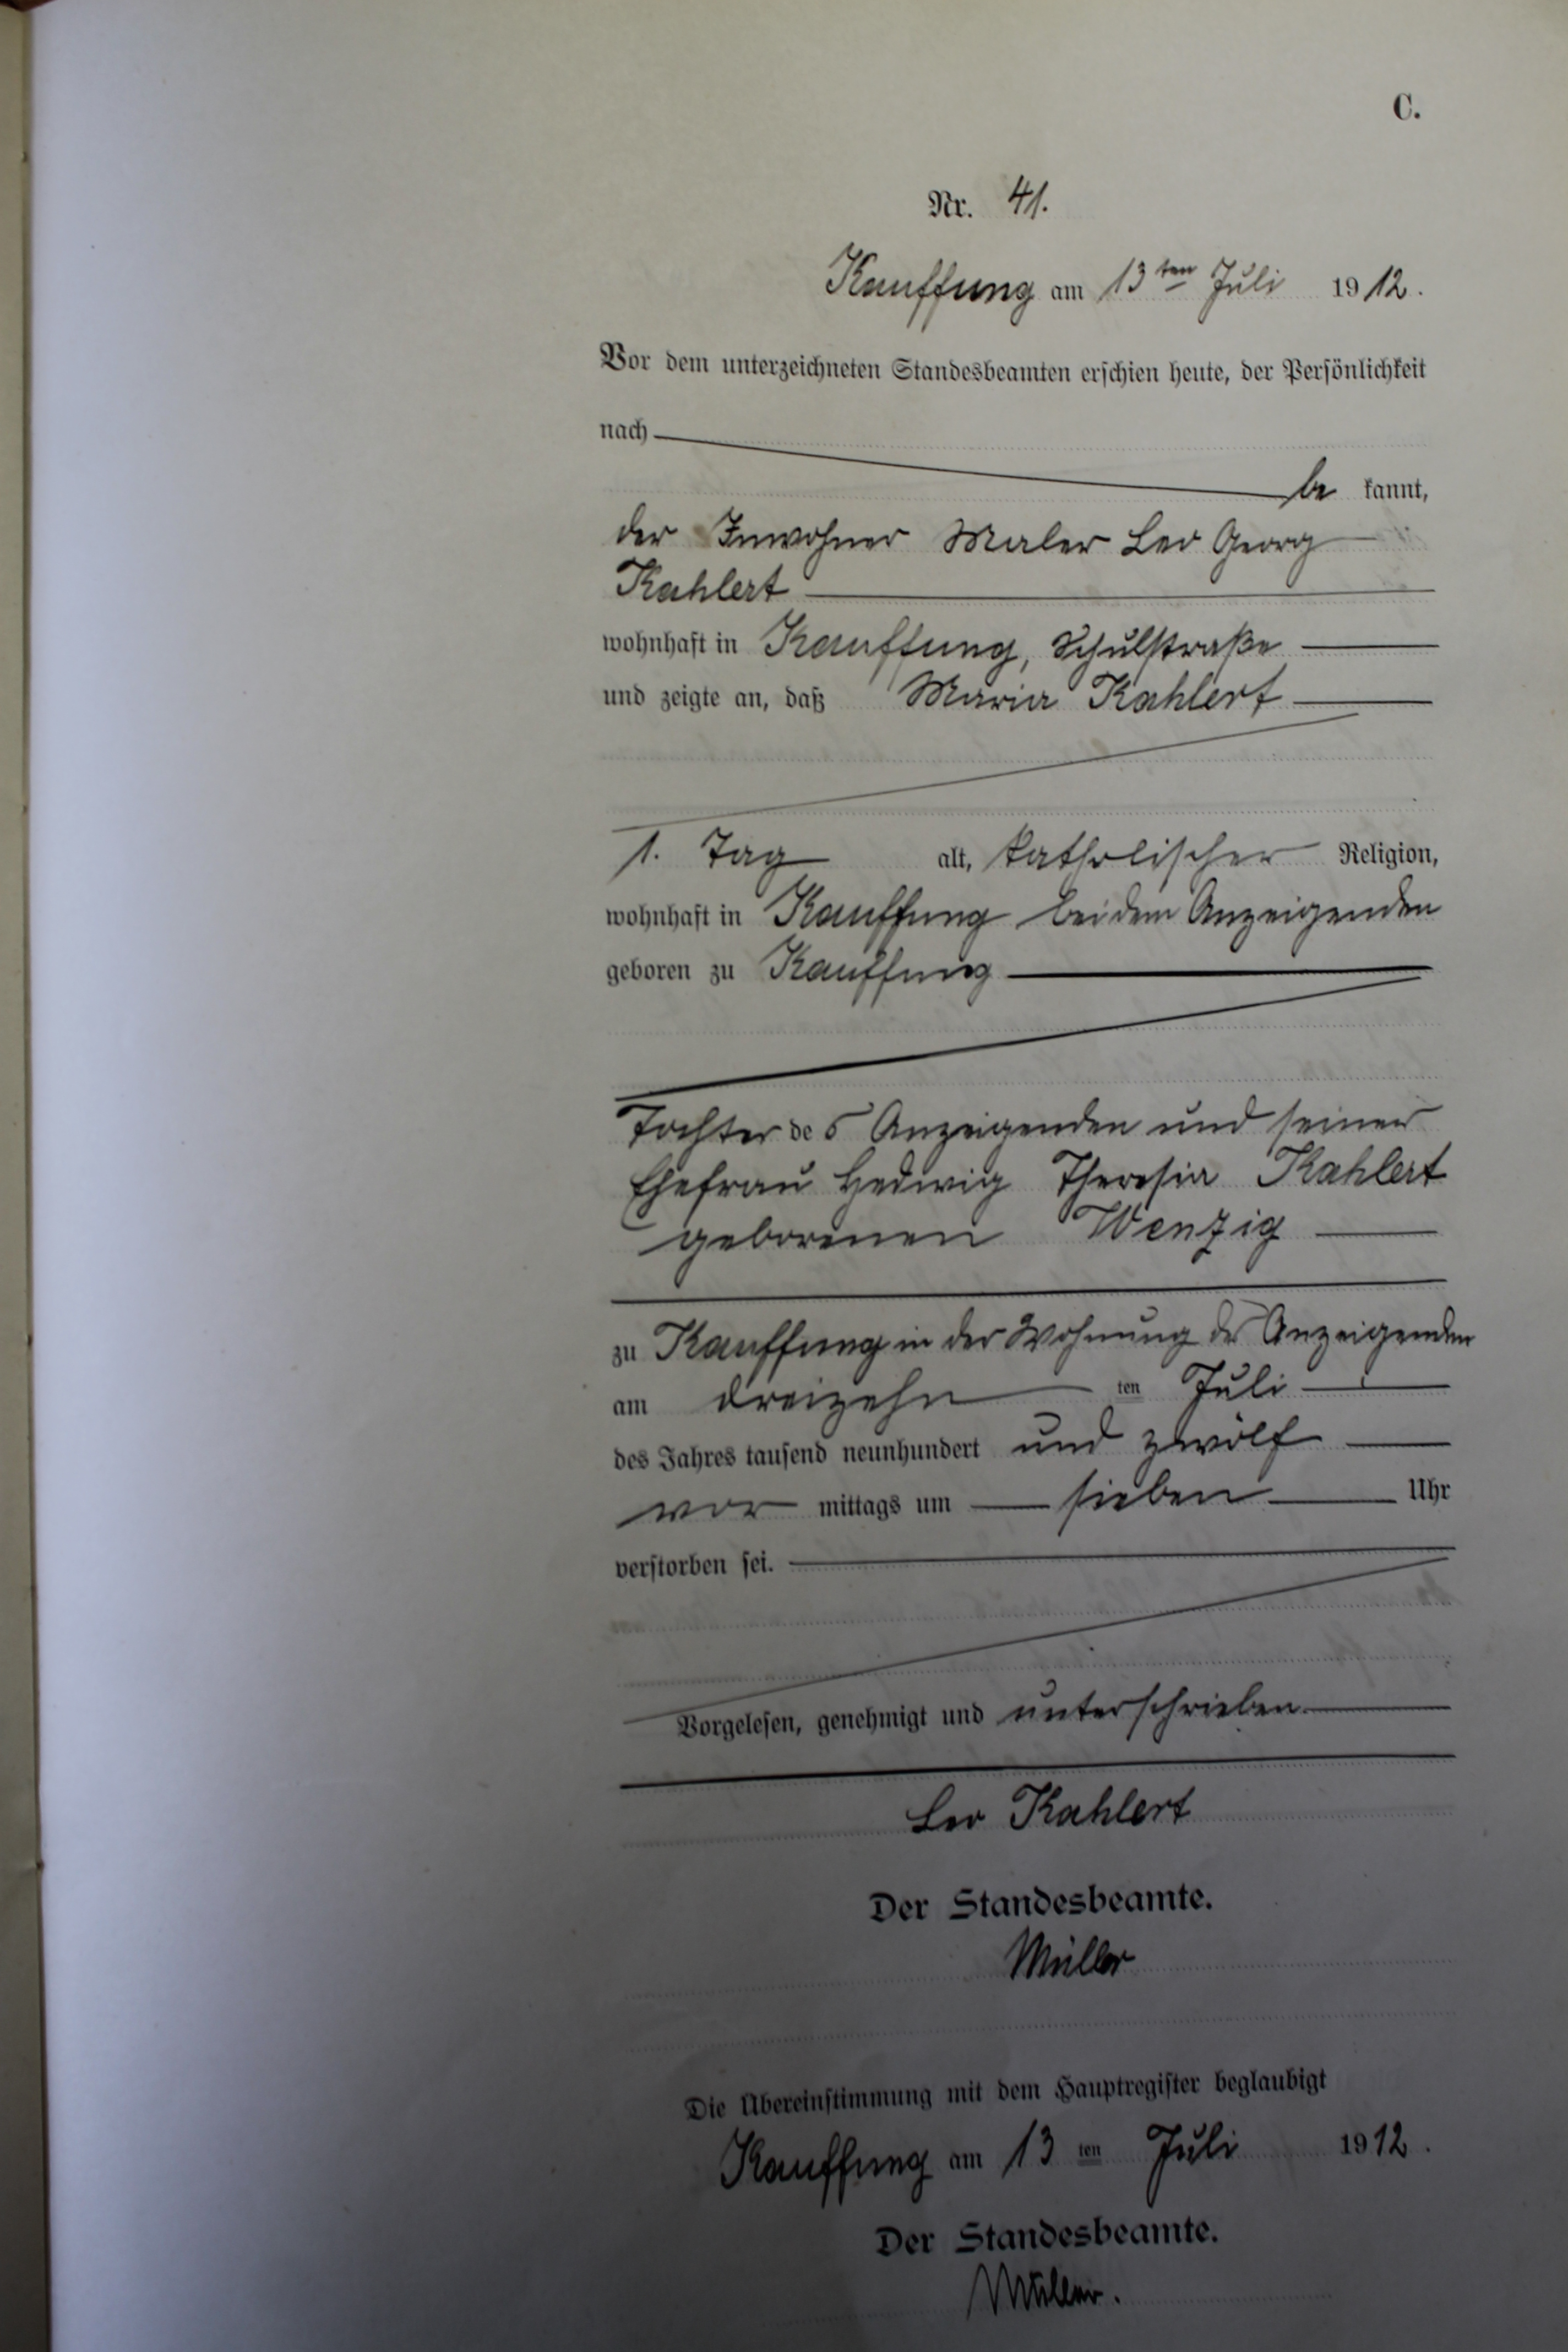 C.
Nr. 41.
Kauffung am 13ten Juli 1912.
Vor dem unterzeichneten Standesbeamten erschien heute, der Persönlichkeit
nach
be kannt,
der Inwohner Maler Leo Georg
Kahlert
wohnhaft in Kauffung, Schulstraße
und zeigte an, daß Maria Kahlert
1. Tag alt, katholischer Religion,
wohnhaft in Kauffung bei dem Anzeigenden
geboren zu Kauffung
Tochter des Anzeigenden und seiner
Ehefrau Hedwig Theresia Kahlert
geborenen Wenzig
zu Kauffung in der Wohnung des Anzeigenden
am dreizehn ten Juli
des Jahres tausend neunhundert und zwölf
vor mittags um sieben Uhr
verstorben sei.
Vorgelesen, genehmigt und unterschrieben
Leo Kahlert
Der Standesbeamte.
Müller
Die Übereinstimmung mit dem Hauptregister beglaubigt
Kauffung am 13 ten Juli 1912.
Der Standesbeamte.
Müller.